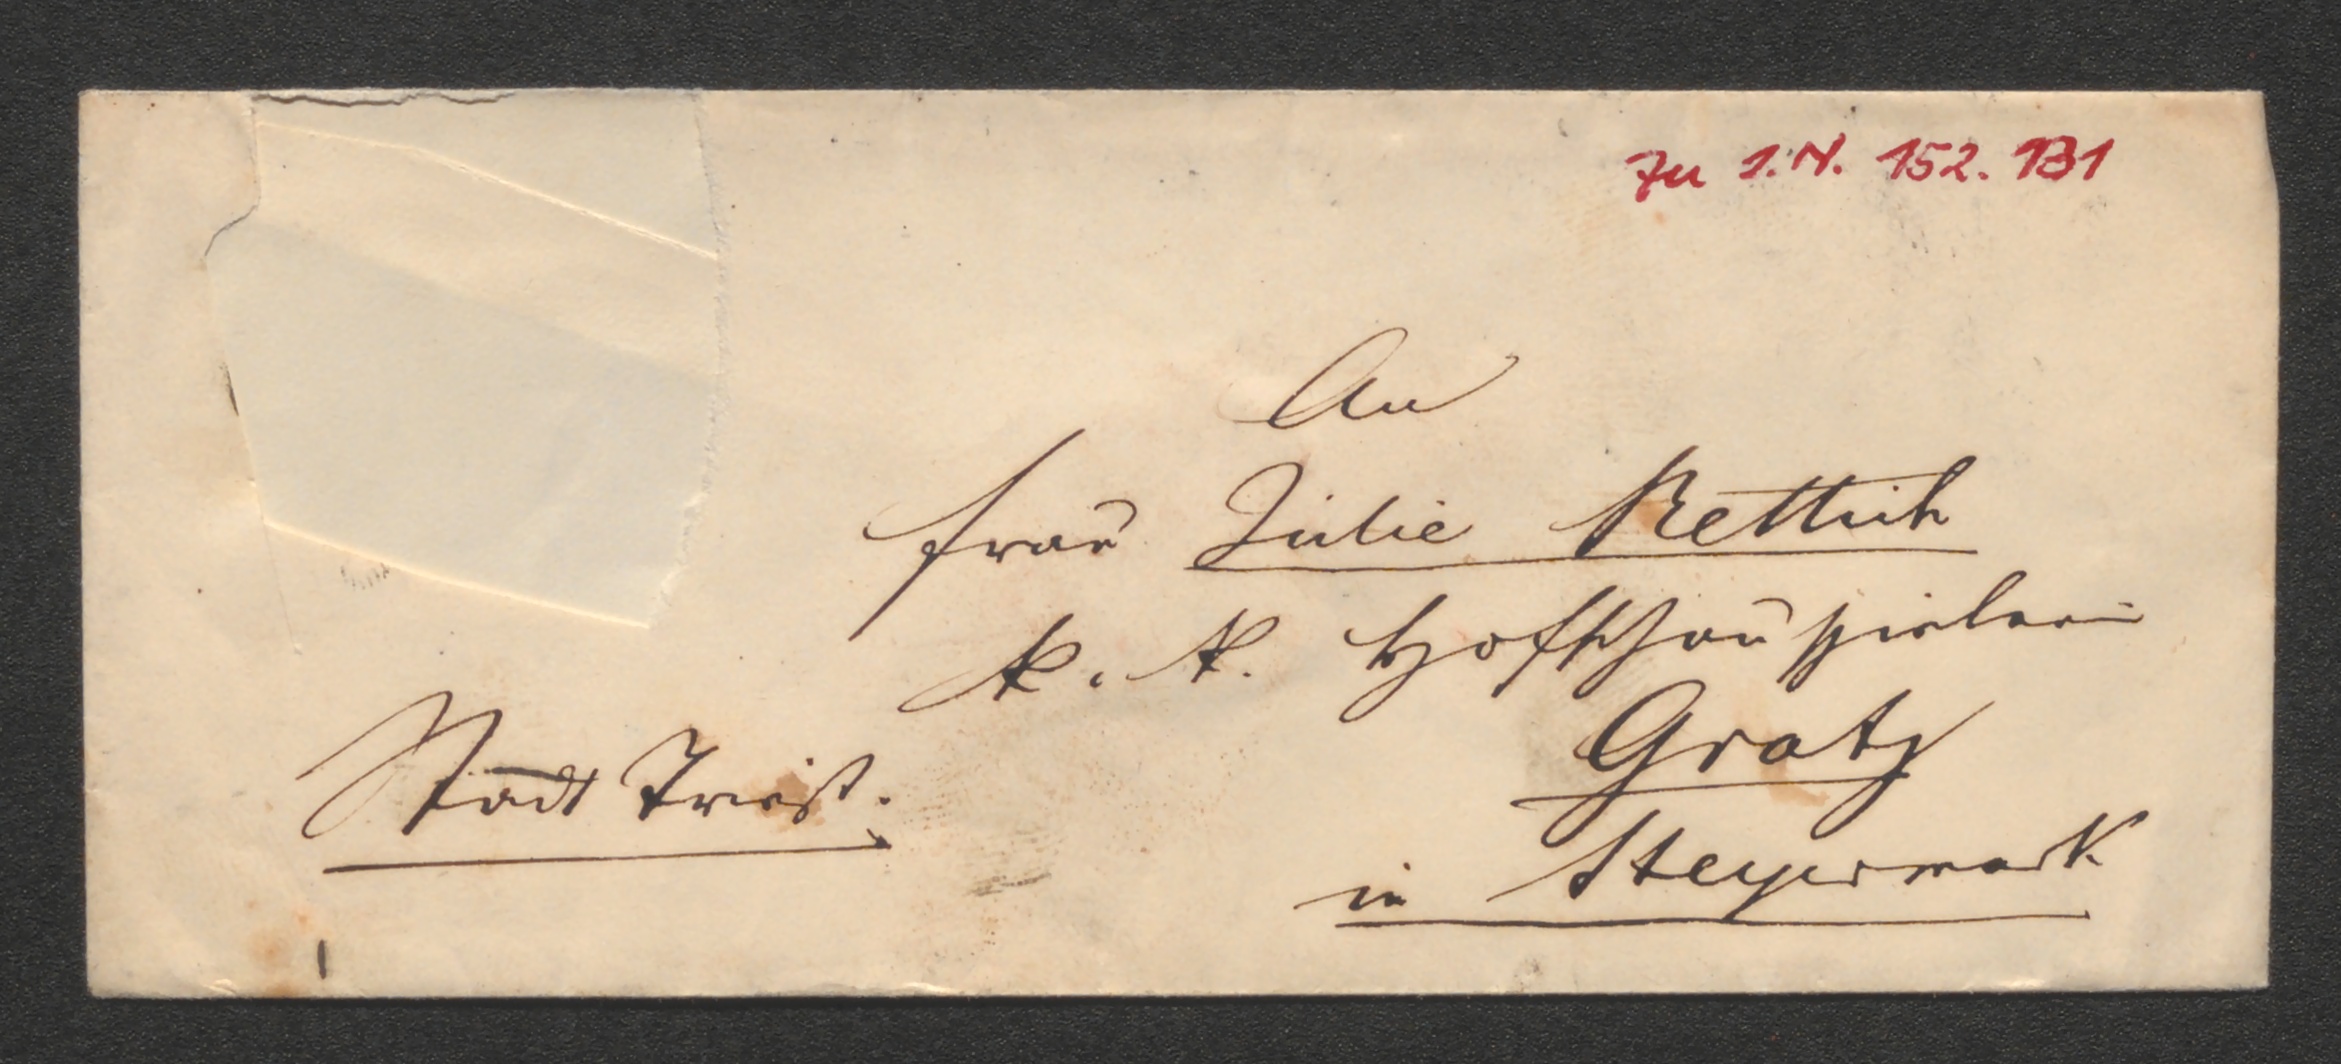 Zu I.N. 152.131
An
Frau Julie Rettich
k. k. Hofschauspielerin
Gratz
Stadt Triest.
in Steyermark